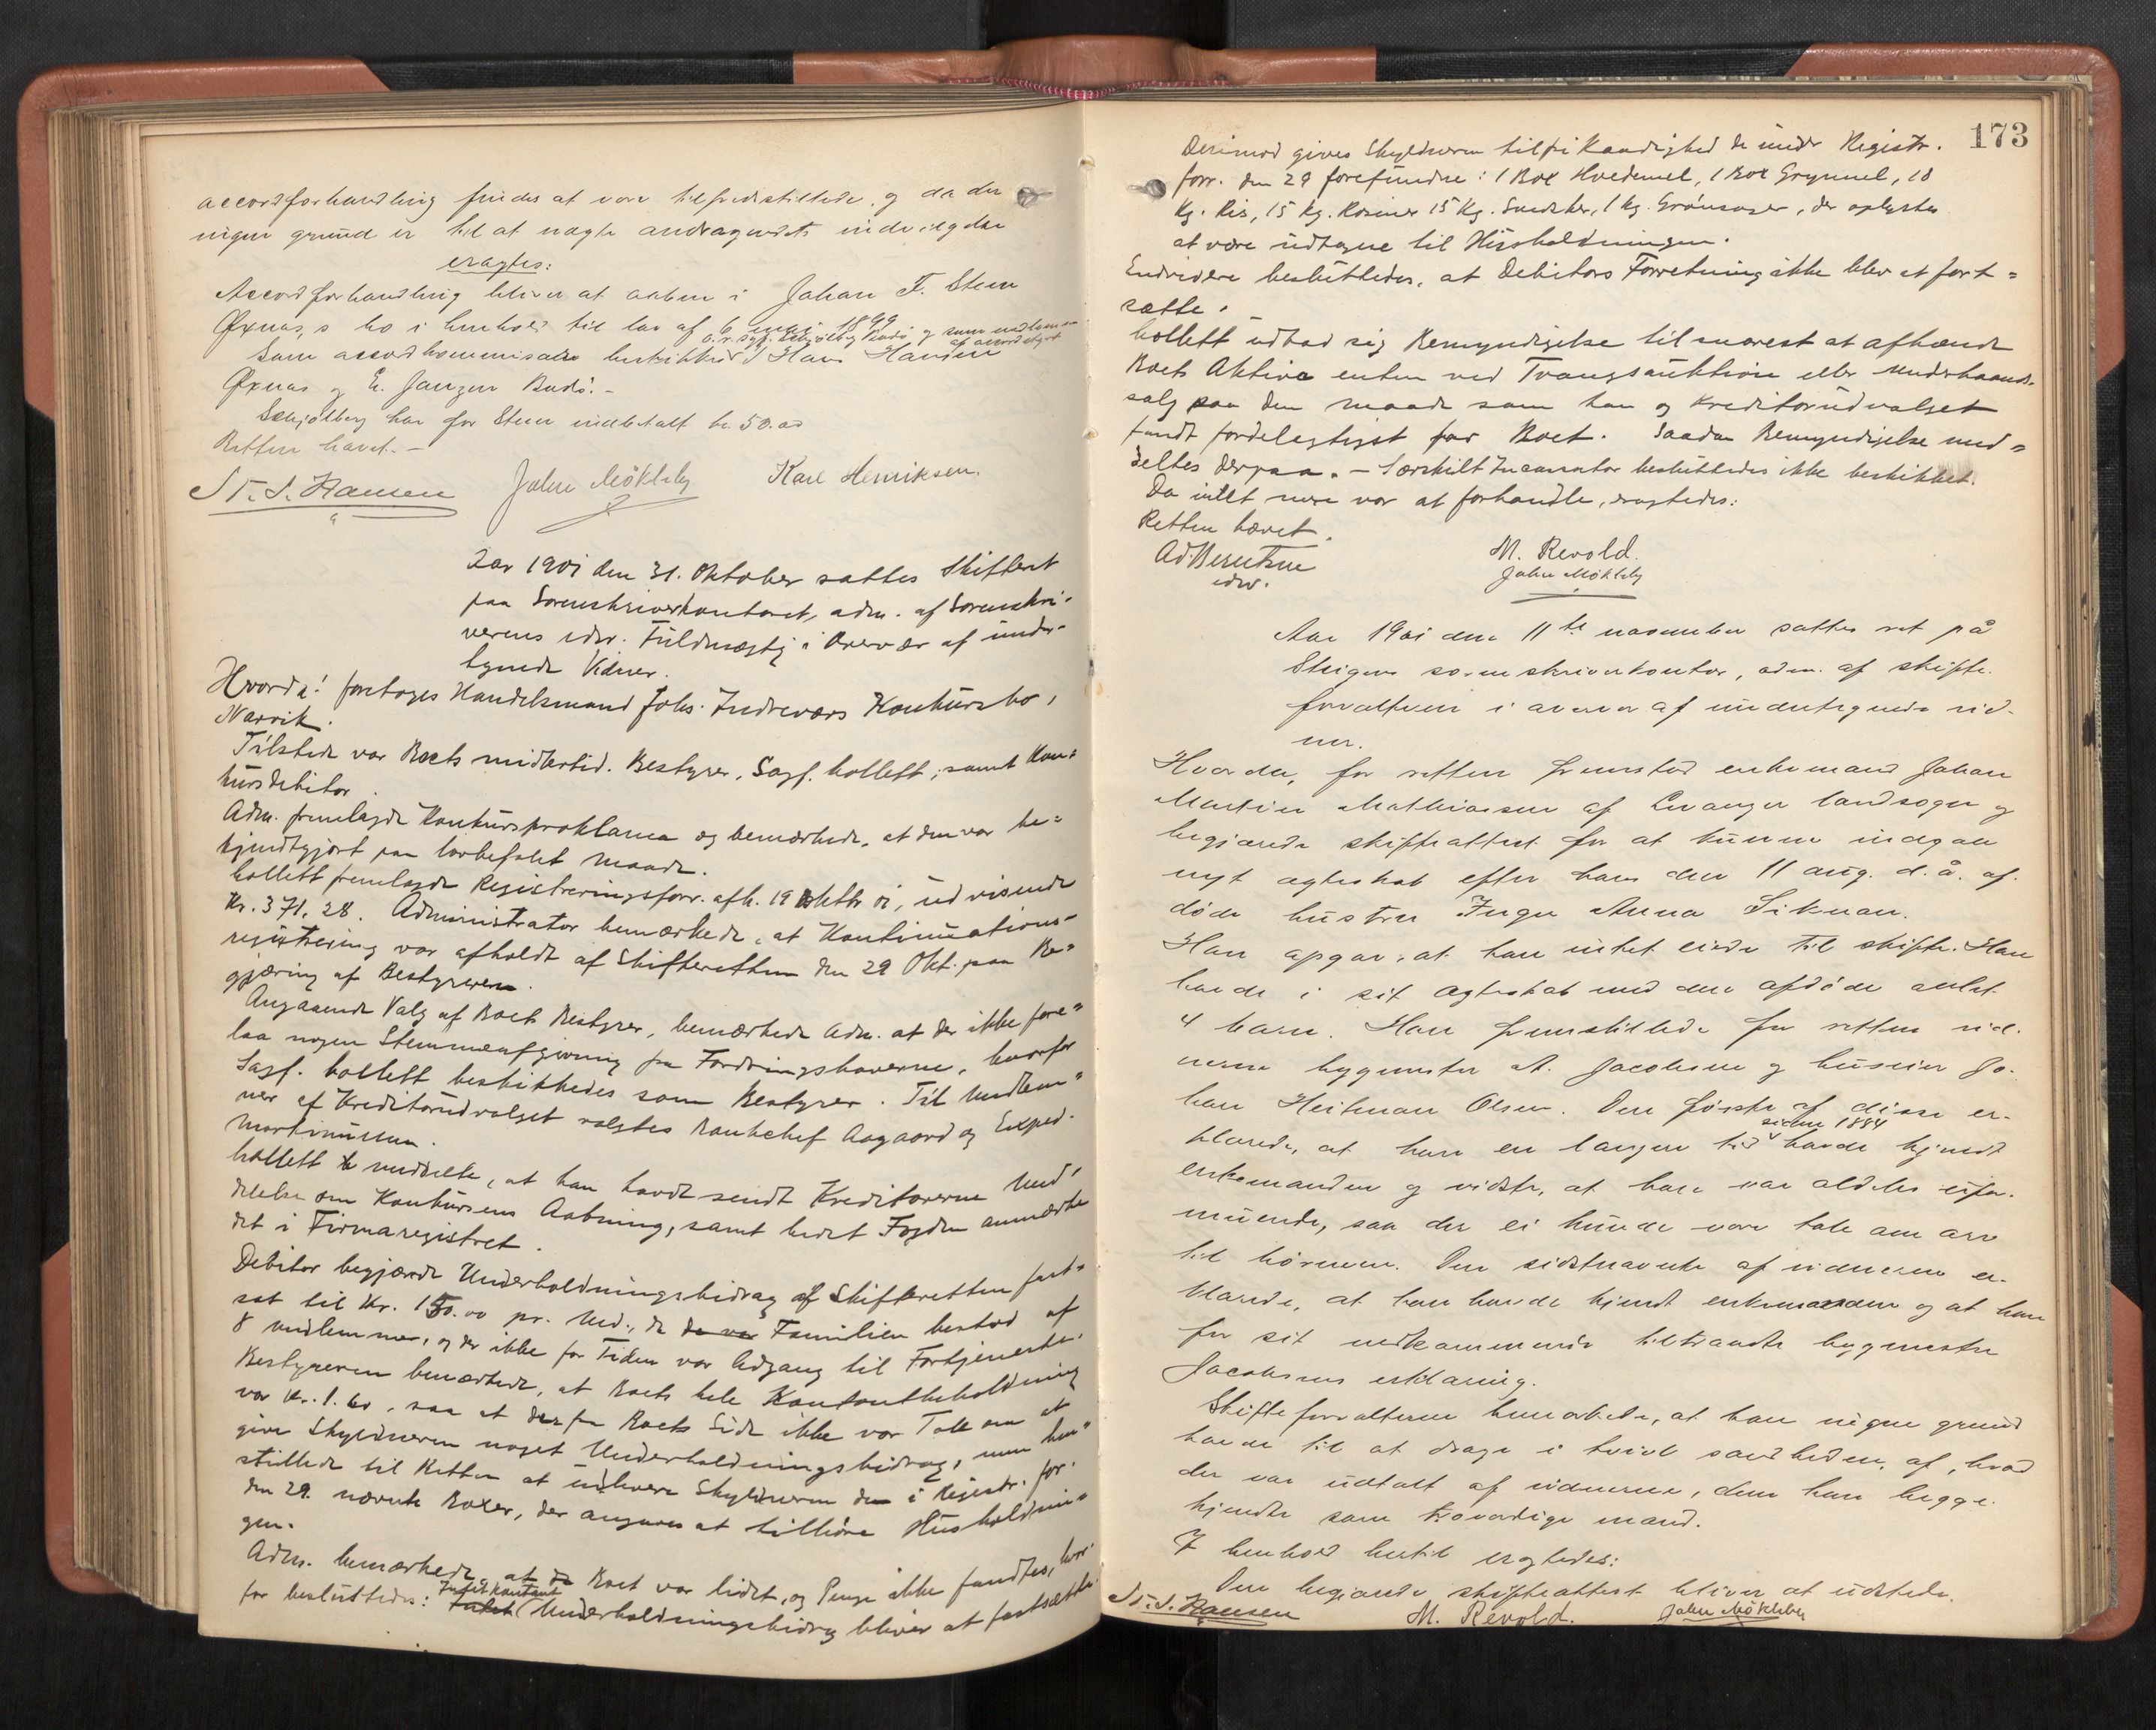 accordforhandling findes at være tilfredsstillede, og da der
ingen grund er til at nægte andragendets indvilgelse
eragtes:
Accordforhandling bliver at aabne i Johan F. Steen
Øxnas,s bo i henhold til lov af 6 mai 1899
Som accordkommisær beskikkes o.r.sgf. Schjølberg Bodø og som medlem
af accordstyret Hans Hansen
Øxnas og E. Jangen Bodø. -
Schjølberg har for Steen indbetalt kr. 50.00
Retten hævet. -
St. S. Hansen John Mökleby Karl Henriksen.
Aar 1901 den 31. Oktober sattes Skifteret
paa Sorenskriverkontoret, adm. af Sorenskri-
verens edsv. Fuldmægtig i Overvær af under-
tegnede Vidner.
Hvorda! foretoges Handelsmand Johs. Indreværs Konkursbo,
Narvik.
Tilstede var Boets midlertid. Bestyrer, Sagf. Collett, samt Kon=
kursdebitor.
Adm. fremlagde Konkursproklama og bemærkede, at den var be=
kjendtgjort paa lovbefalet Maade.
Collett fremlagde Registreringsforr. afh. 19 Oktbr 01, udvisende
Kr. 371,28. Administrator bemærkede, at Kontinuations-
registrering var afholdt af Skifteretten den 29 Okt. paa Be=
gjæring af Bestyreren.
Angaaende Valg af Boets Bestyrer, bemærkede Adm. at der ikke fore=
laa nogen Stemmeafgivning fra Fordringshaverne, hvorfor
Sagf. Collett beskikkedes som Bestyrer. Til Medlem=
mer af Kreditorudvalget valgtes Bankchef Aagaard og Exped.
Martinussen.
Collett meddelte, at han havde sendt Kreditorerne Med=
delelse om Konkursens Aabning, samt bedet Fogden anmærke
det i Firmaregistret.
Debitor begjærede Underholdningsbidrag af Skifteretten fast=
sat til Kr. 150.00 pr. Md., da de var Familien bestod af
8 medlemmer, og der ikke for Tiden var Adgang til Fortjeneste.
Bestyreren bemærkede, at Boets hele Kontantbeholdning
var Kr. 1.60, saa at der fra Boets Side ikke var Tale om at
give Skyldneren noget Underholdningsbidrag, men hen=
stillede til Retten at udlevere Skyldneren de i Registr. for.
den 29. nævnte Boxer, der angaves at tilhöre Husholdnin=
gen.
Adm. bemærkede, at da Boet var lidet, og Penge ikke fandtes, hvor=
for besluttedes: Intet kontant
Intet Underholdningsbidrag bliver at fastsætte.
173
Derimod gives Skyldneren tilfri Raadighed de under Registr.
forr. den 29 forefundne: 1 Box Hvedemel, 1 Box Grynmel, 10
Kg. Ris, 15 Kg. Rosiner 15 Kg. Svedsker, 1 kg. Grönsager, der oplystes
at være udtagne til Husholdningen.
Endvidere besluttedes, at Debitors Forretning ikke blev at fort=
sætte.
Collett udbad sig Bemyndigelse til snarest at afhænde
Boets Aktiva enten ved Tvangsauktion eller underhaands=
salg paa den maade som han og Kreditorudvalget
fandt fordelagtigst for Boet. Saadan Bemyndigelse med=
deltes derpaa. - Særskilt Incassator besluttedes ikke beskikket.
Da intet mere var at forhandle, eragtedes:
Retten hævet.
Ad. Berntsen M. Revold.
edsv. John Mökleby
Aar 1901 den 11te november sattes ret på
Steigens sorenskriverkontor, adm. af skifte-
forvalteren i overvær af undertegnede vid-
ner.
Hvorda, for retten fremstod enkemand Johan
Martin Mathiassen af Evanger landsogn og
begjærede skifteattest for at kunne indgaa
nyt ægteskab efter hans den 11 aug. d. å. af-
döde hustru Inger Anna Sikuan.
Han opgav, at han intet eiede til skifte. Han
havde i sit ægteskab med den afdöde avlet
4 barn. Han fremstillede for retten vid-
nerne bygmester A. Jacobsen og huseier Jo-
han Heitman Olsen. Den förste af disse er-
klærede, at han en længere tid siden 1884 havde kjendt
enkemanden og vidste, at han var aldeles ufor-
muende, saa der ei kunde være tale om arv
til börnene. Den sidstnævnte af vidnerne er-
klærede, at han havde kjendt enkemanden og at han
for sit vedkommende tiltraadte bygmester
Jacobsens erklæring.
Skifteforvalteren bemærkede, at han ingen grund
havde til at drage i tvivl sandheden af, hvad
der var udtalt af vidnerne, dem han begge
kjendte som troværdige mænd.
I henhold hertil eragtedes:
Den begjærede skifteattest bliver at udstede.
St. S. Hansen M. Revold. John Mökleby